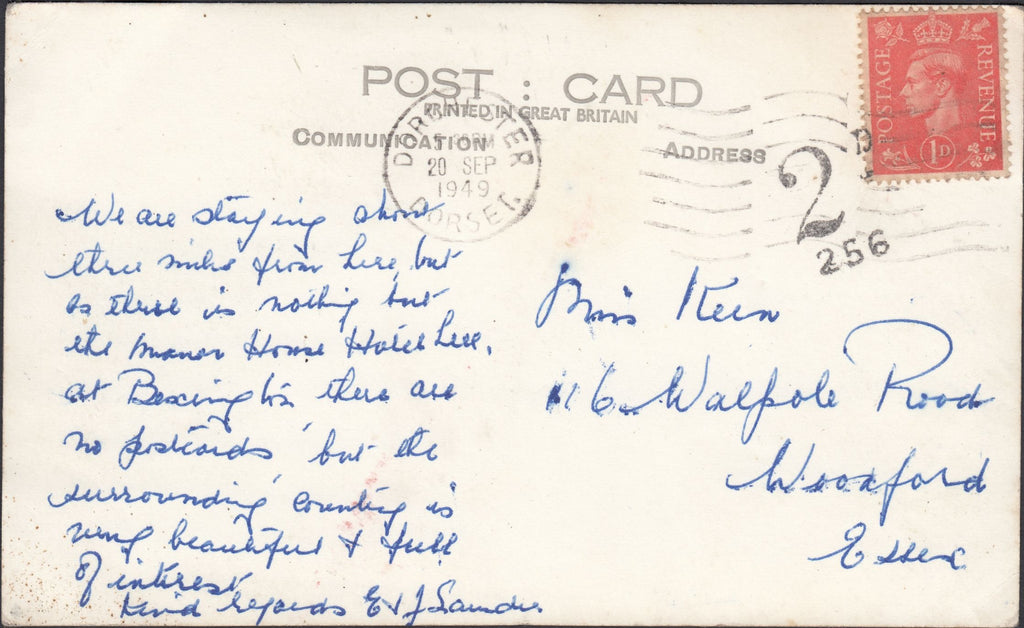 POST : CARD
PRINTED IN GREAT BRITAIN
COMMUNICATION
ADDRESS
POSTAGE
REVENUE
1D
DORCHESTER
PM
20 SEP
1949
DORSET.
2
256
We are staying about
three miles from here, but
as there is nothing but
the Manor House Hotel here,
at Bexington there are
no postcards but the
surrounding country is
very beautiful & full
of interest
Kind regards E & J Saunders
Miss Keen
116 Walpole Road
Woodford
Essex